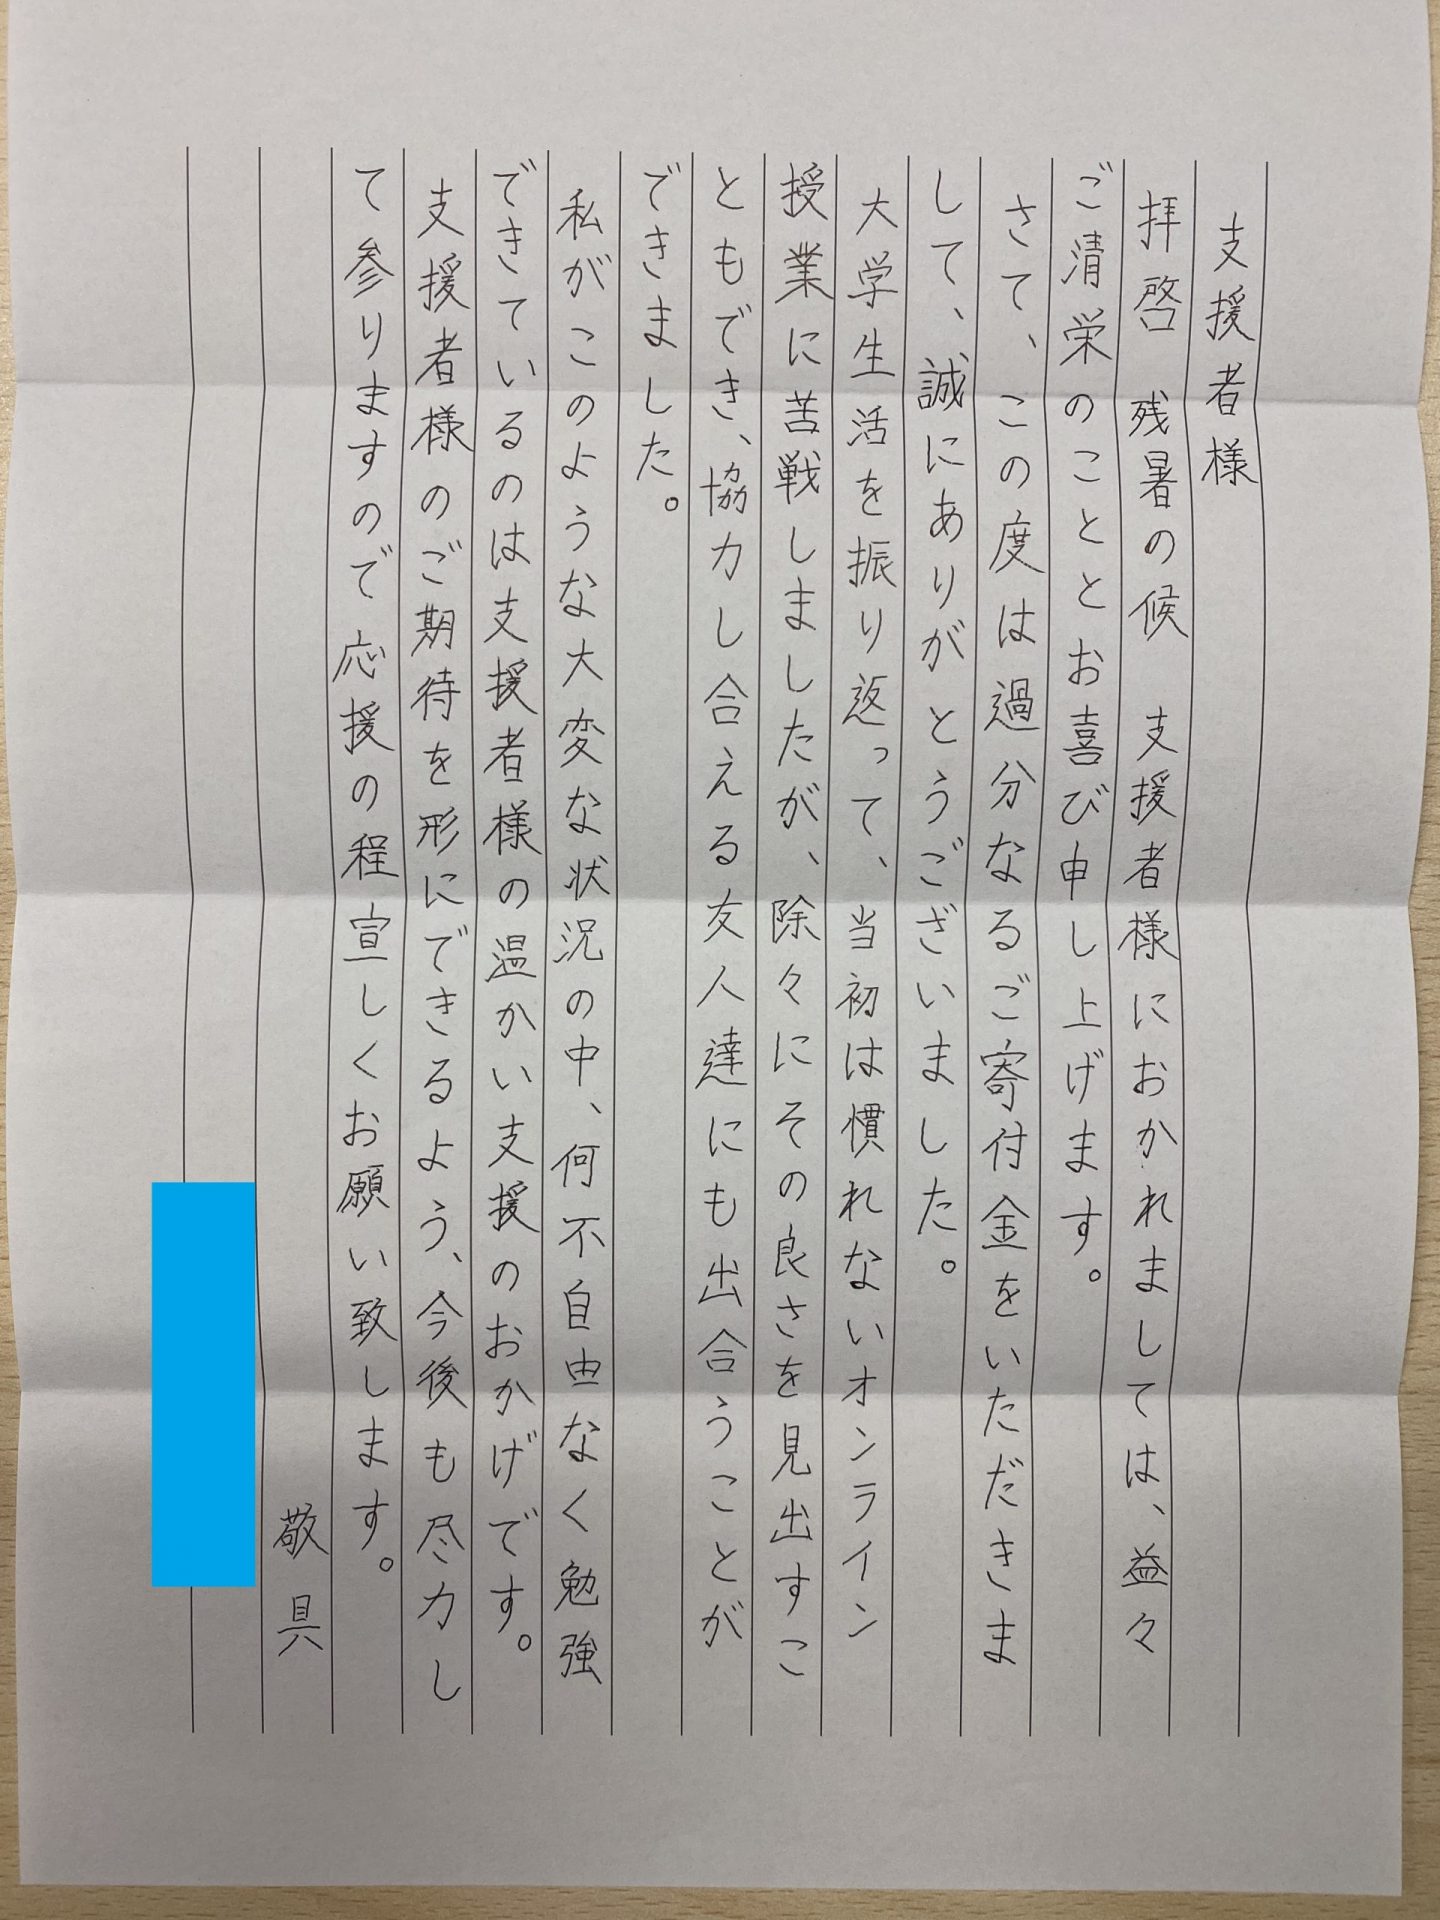 支援者様
拝啓 残暑の候 支援者様におかれましては、益々
ご清栄のこととお喜び申し上げます。
さて、この度は過分なるご寄付金をいただきま
して、誠にありがとうございました。
大学生活を振り返って、当初は慣れないオンライン
授業に苦戦しましたが、除々にその良さを見出すこ
ともでき、協力し合える友人達にも出合うことが
できました。
私がこのような大変な状況の中、何不自由なく勉強
できているのは支援者様の温かい支援のおかげです。
支援者様のご期待を形にできるよう、今後も尽力し
て参りますので応援の程宣しくお願い致します。
敬具